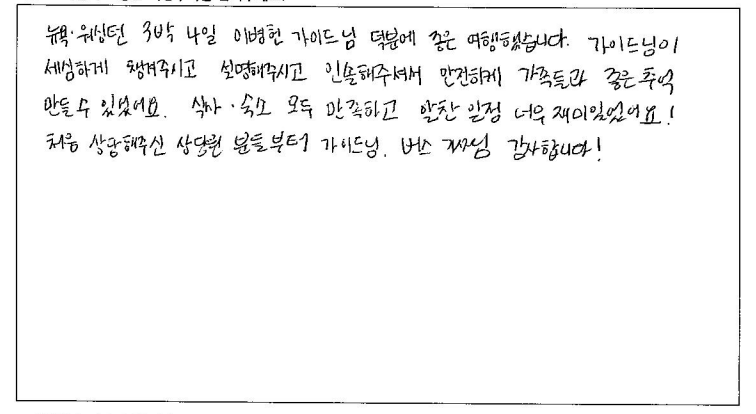 뉴욕·워싱턴 3박 4일 이병헌 가이드님 덕분에 좋은 여행했습니다. 가이드님이
세심하게 챙겨주시고 설명해주시고 인솔해주셔서 안전하게 가족들과 좋은 추억
만들 수 있었어요. 식사·숙소 모두 만족하고 알찬 일정 너무 재미있었어요!
처음 상담해주신 상담원 분들부터 가이드님, 버스 기사님 감사합니다!